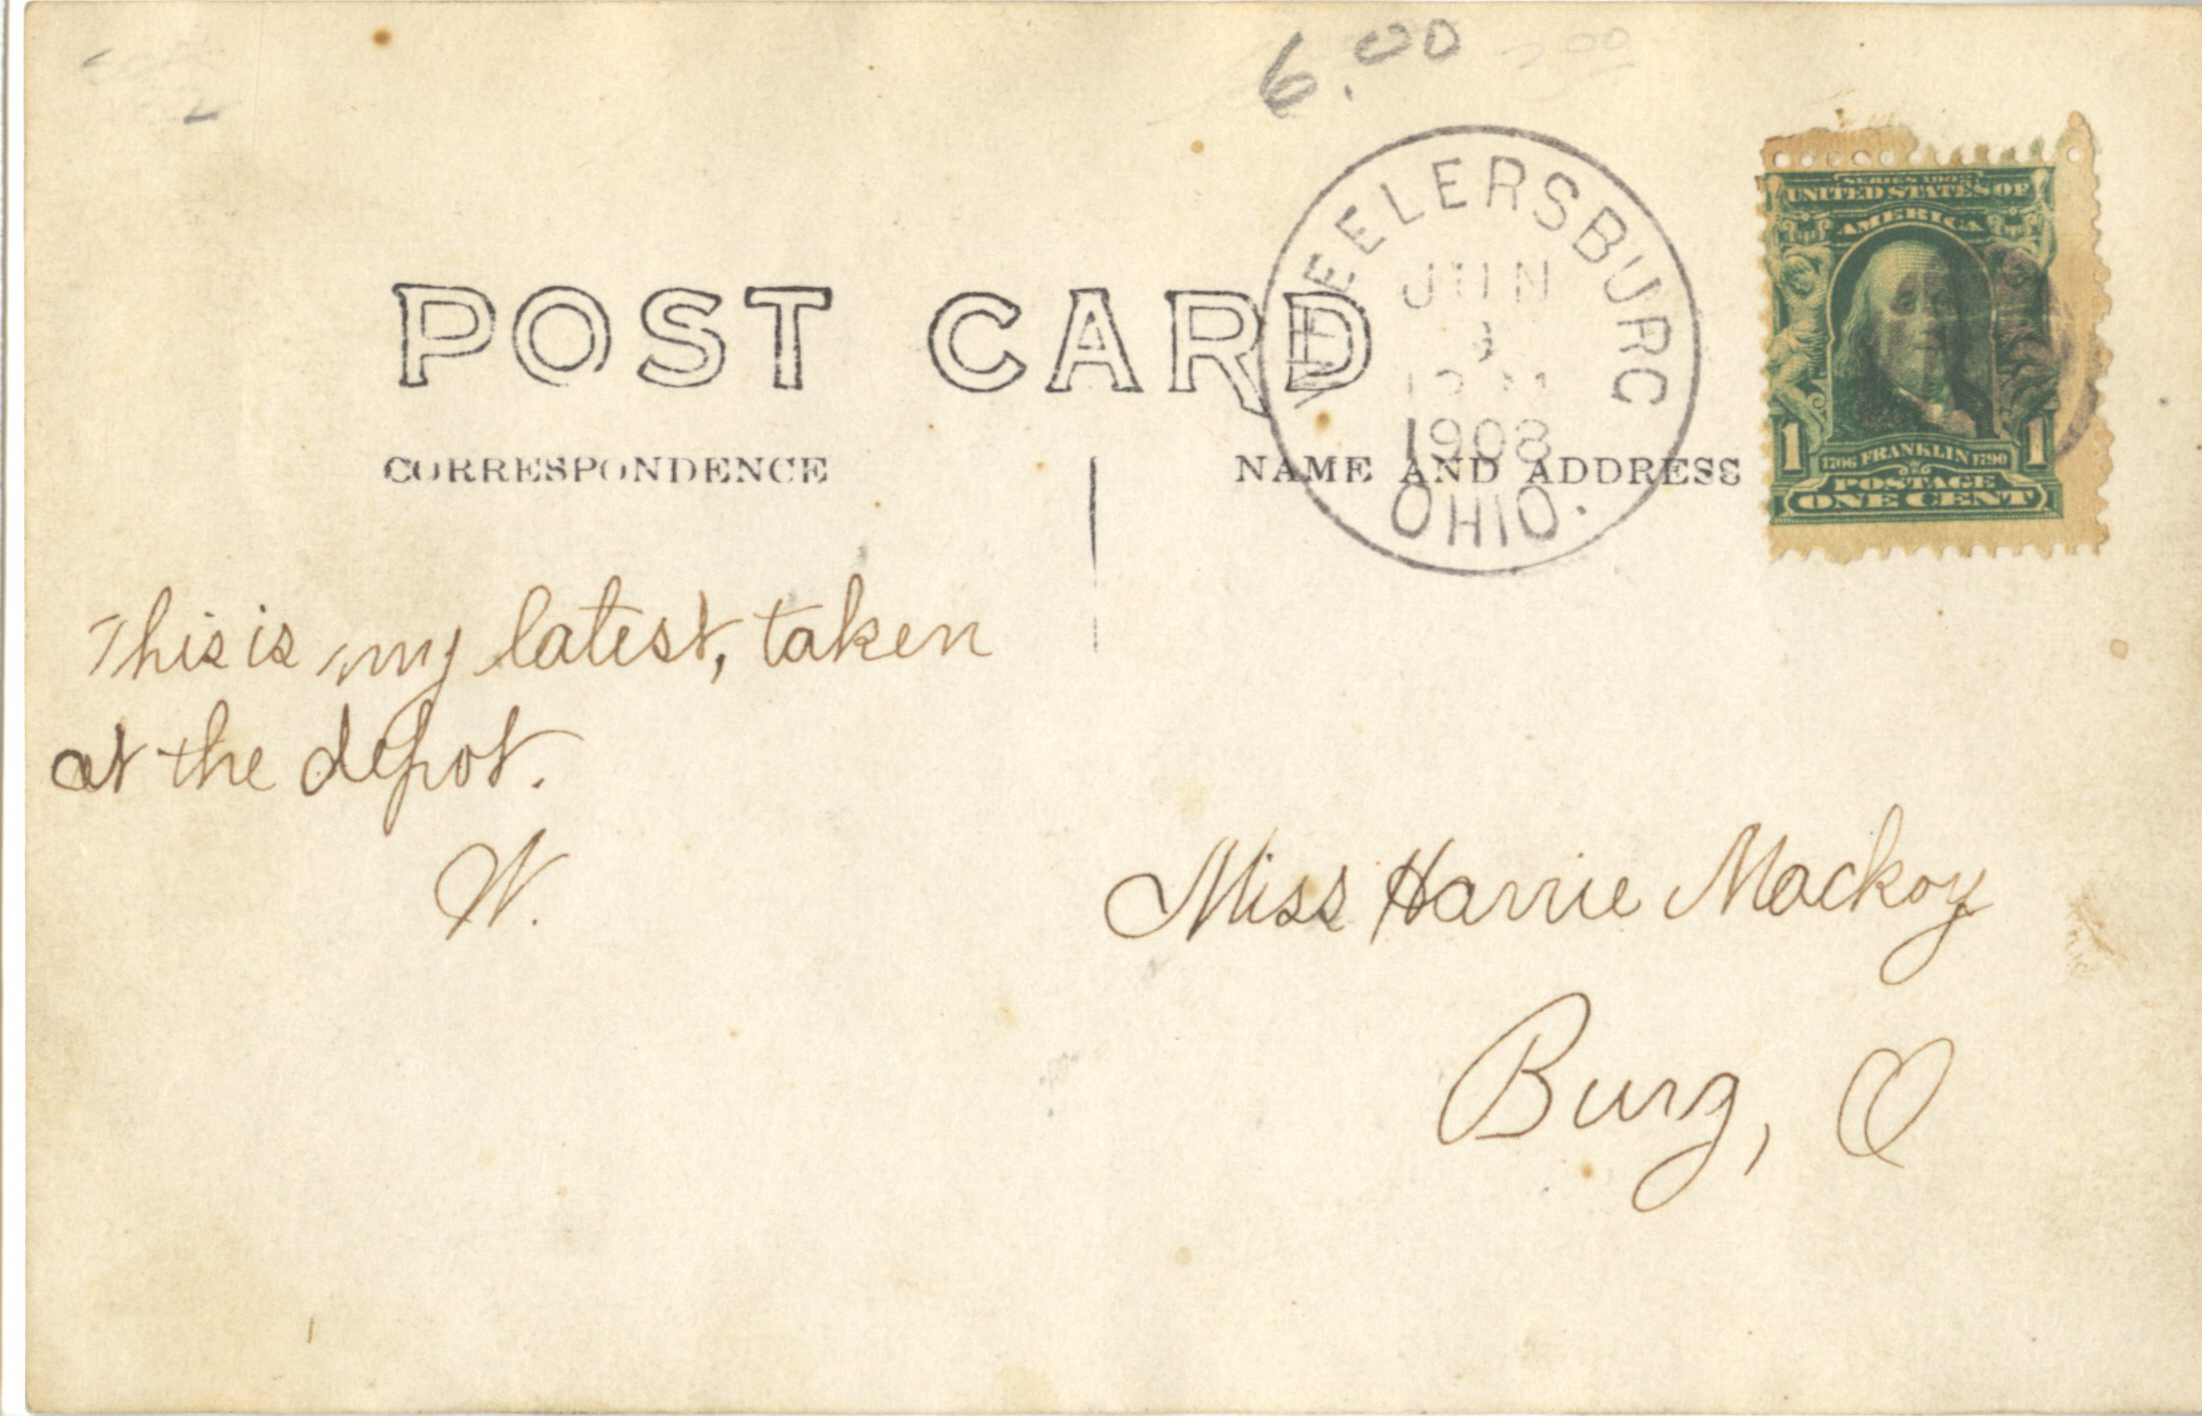 6.00
WHEELERSBURG
JUN
1908
OHIO.
SERIES 1902
UNITED STATES OF
AMERICA
1 1
1706 FRANKLIN 1790
POSTAGE
ONE CENT
POST CARD
CORRESPONDENCE
NAME AND ADDRESS
This is my latest, taken
at the depot.
W.
Miss Harrie Mackoy
Burg, O